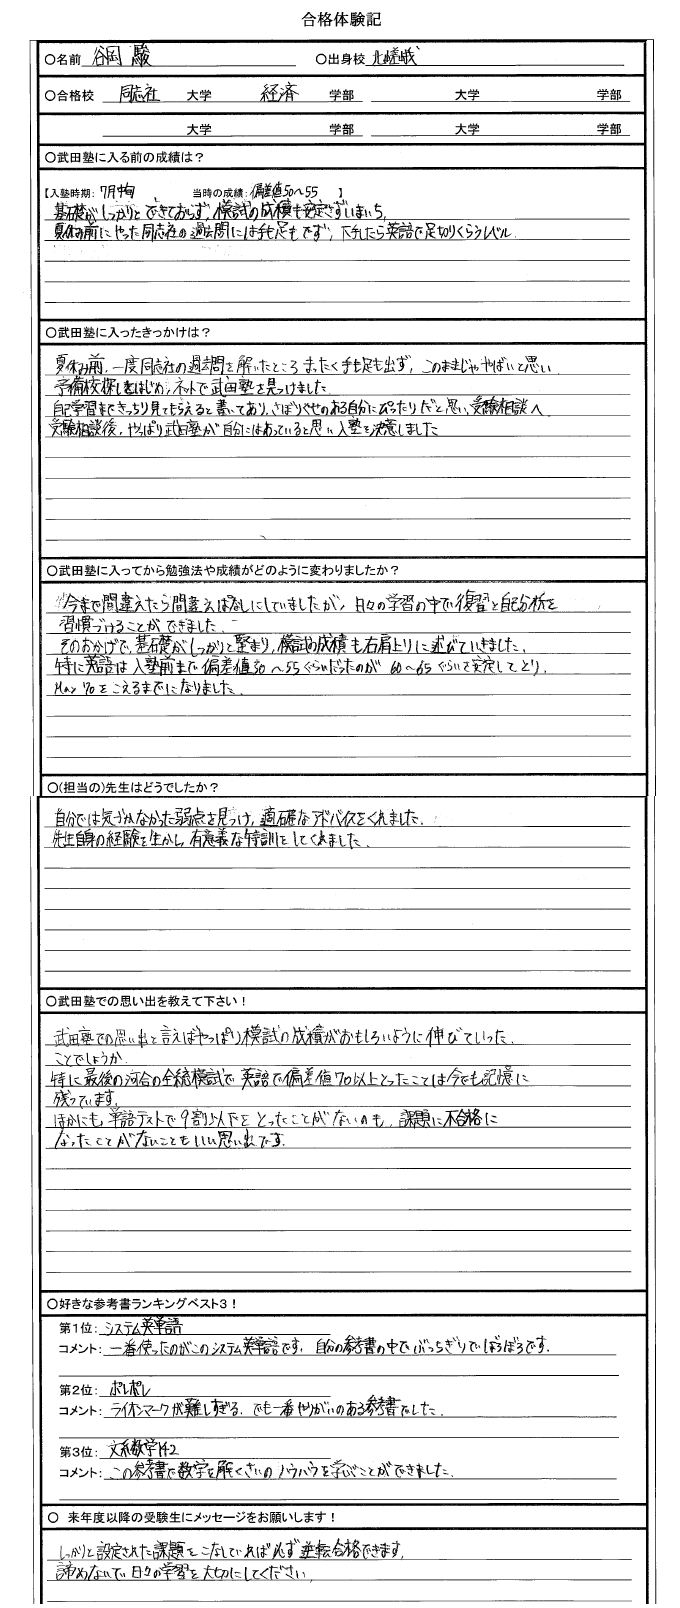 合格体験記
○名前 谷岡 駿 ○出身校 北嵯峨
○合格校 同志社 大学 経済 学部 大学 学部
大学 学部 大学 学部
○武田塾に入る前の成績は?
【入塾時期: 7月中旬 当時の成績: 偏差値50~55 】
基礎がしっかりとできておらず、模試の成績も安定せずいまいち。
夏休み前にやった同志社の過去問には手も足もでず、下手したら英語で足切りくらうレベル.
○武田塾に入ったきっかけは?
夏休み前、一度同志社の過去問を解いたところまったく手も足も出ず、このままじゃやばいと思い
予備校探しをはじめ、ネットで武田塾を見つけました
自己学習まできっちり見てもらえると書いてあり、さぼりぐせのある自分にぴったりだと思い、受験相談へ
受験相談後、やっぱり武田塾が自分にはあっていると思い入塾を決意しました
○武田塾に入ってから勉強法や成績がどのように変わりましたか?
今まで間違えたら間違えっぱなしにしていましたが、日々の学習の中で復習と自己分析を
習慣づけることができました.
そのおかげで、基礎がしっかりと堅まり、模試の成績も右肩上りに延びていきました.
特に英語は入塾前まで偏差値50~55ぐらいだったのが 60~65ぐらいで安定してとり、
Max 70をこえるまでになりました.
○(担当の)先生はどうでしたか?
自分では気づかなかった弱点を見つけ、適確なアドバイスをくれました.
先生自身の経験を生かし、有意義な特訓をしてくれました.
○武田塾での思い出を教えて下さい!
武田塾での思い出と言えばやっぱり模試の成績がおもしろいように伸びていった.
ことでしょうか.
特に最後の河合の全統模試で英語で偏差値70以上とったことは今でも記憶に
残っています.
ほかにも単語テストで9割以下をとったことがないのも、課題に不合格に
なったことがないこともいい思い出です.
○好きな参考書ランキングベスト3!
第1位: システム英単語
コメント: 一番使ったのがこのシステム英単語です. 自分の参考書の中でぶっちぎりでぼろぼろです.
第2位: ポレポレ
コメント: ライオンマークが難しすぎる. でも一番やりがいのある参考書でした.
第3位: 文系数学1A2
コメント: この参考書で数学を解くさいのノウハウを学ぶことができました.
○ 来年度以降の受験生にメッセージをお願いします!
しっかりと設定された課題をこなしていれば必ず逆転合格できます.
諦めないで日々の学習を大切にしてください.